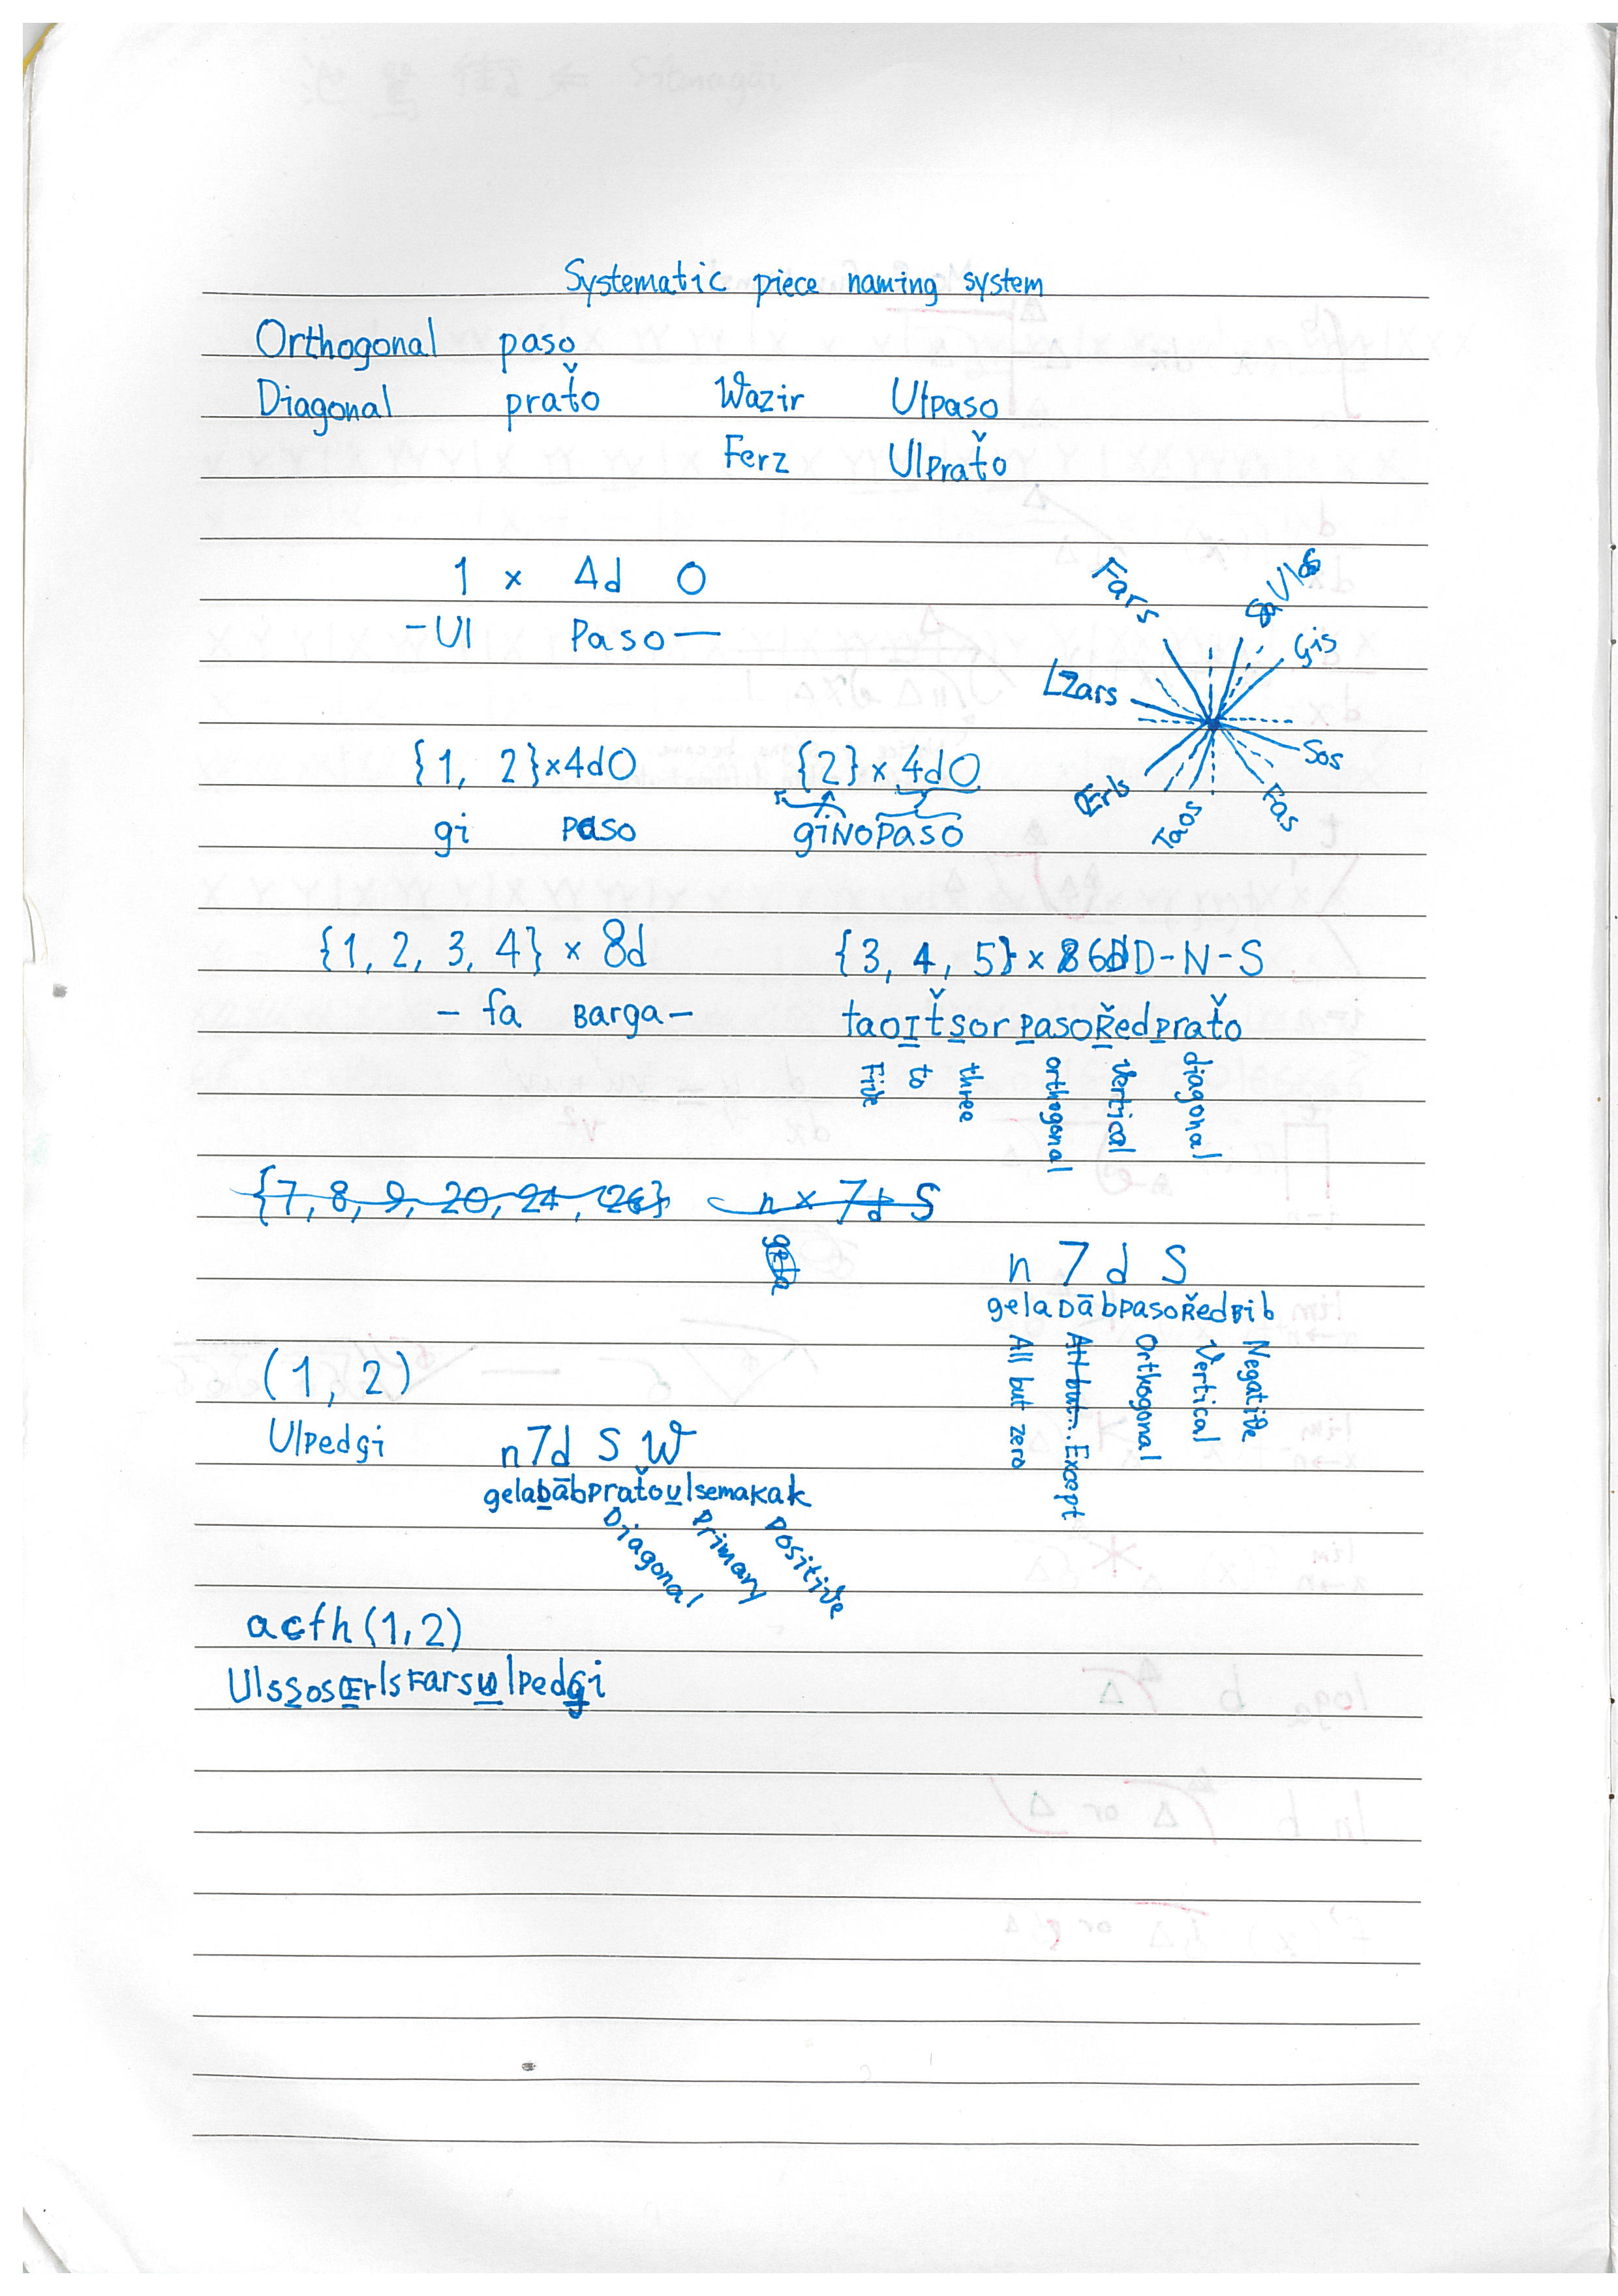 Systematic piece naming system
Orthogonal paso
Diagonal prať̌o Wazir Ulpaso
Ferz Ulprať̌o
1 x 4d O
-Ul Paso-
Fars
Gis
Lzars
Sos
Œrls
Taos
Fas
{1, 2}x4dO {2}x4dO
gi paso giNopaso
{1, 2, 3, 4} x 8d {3, 4, 5}x 6dD-N-S
- fa Barga- taoIť̌sorpasoŘedprať̌o
Five to three orthogonal vertical diagonal
{7, 8, 9, 20, 24, 26} n x 7d S
n 7 d S
gelaDābpasoŘedBib
All but zero
Except
Orthogonal
Vertical
Negative
(1, 2)
Ulpedgi
n7d S W
gelabābprať̌oulsemakak
Diagonal Primary Positive
acfh(1,2)
UlsSosŒrlsFarsulpedgi